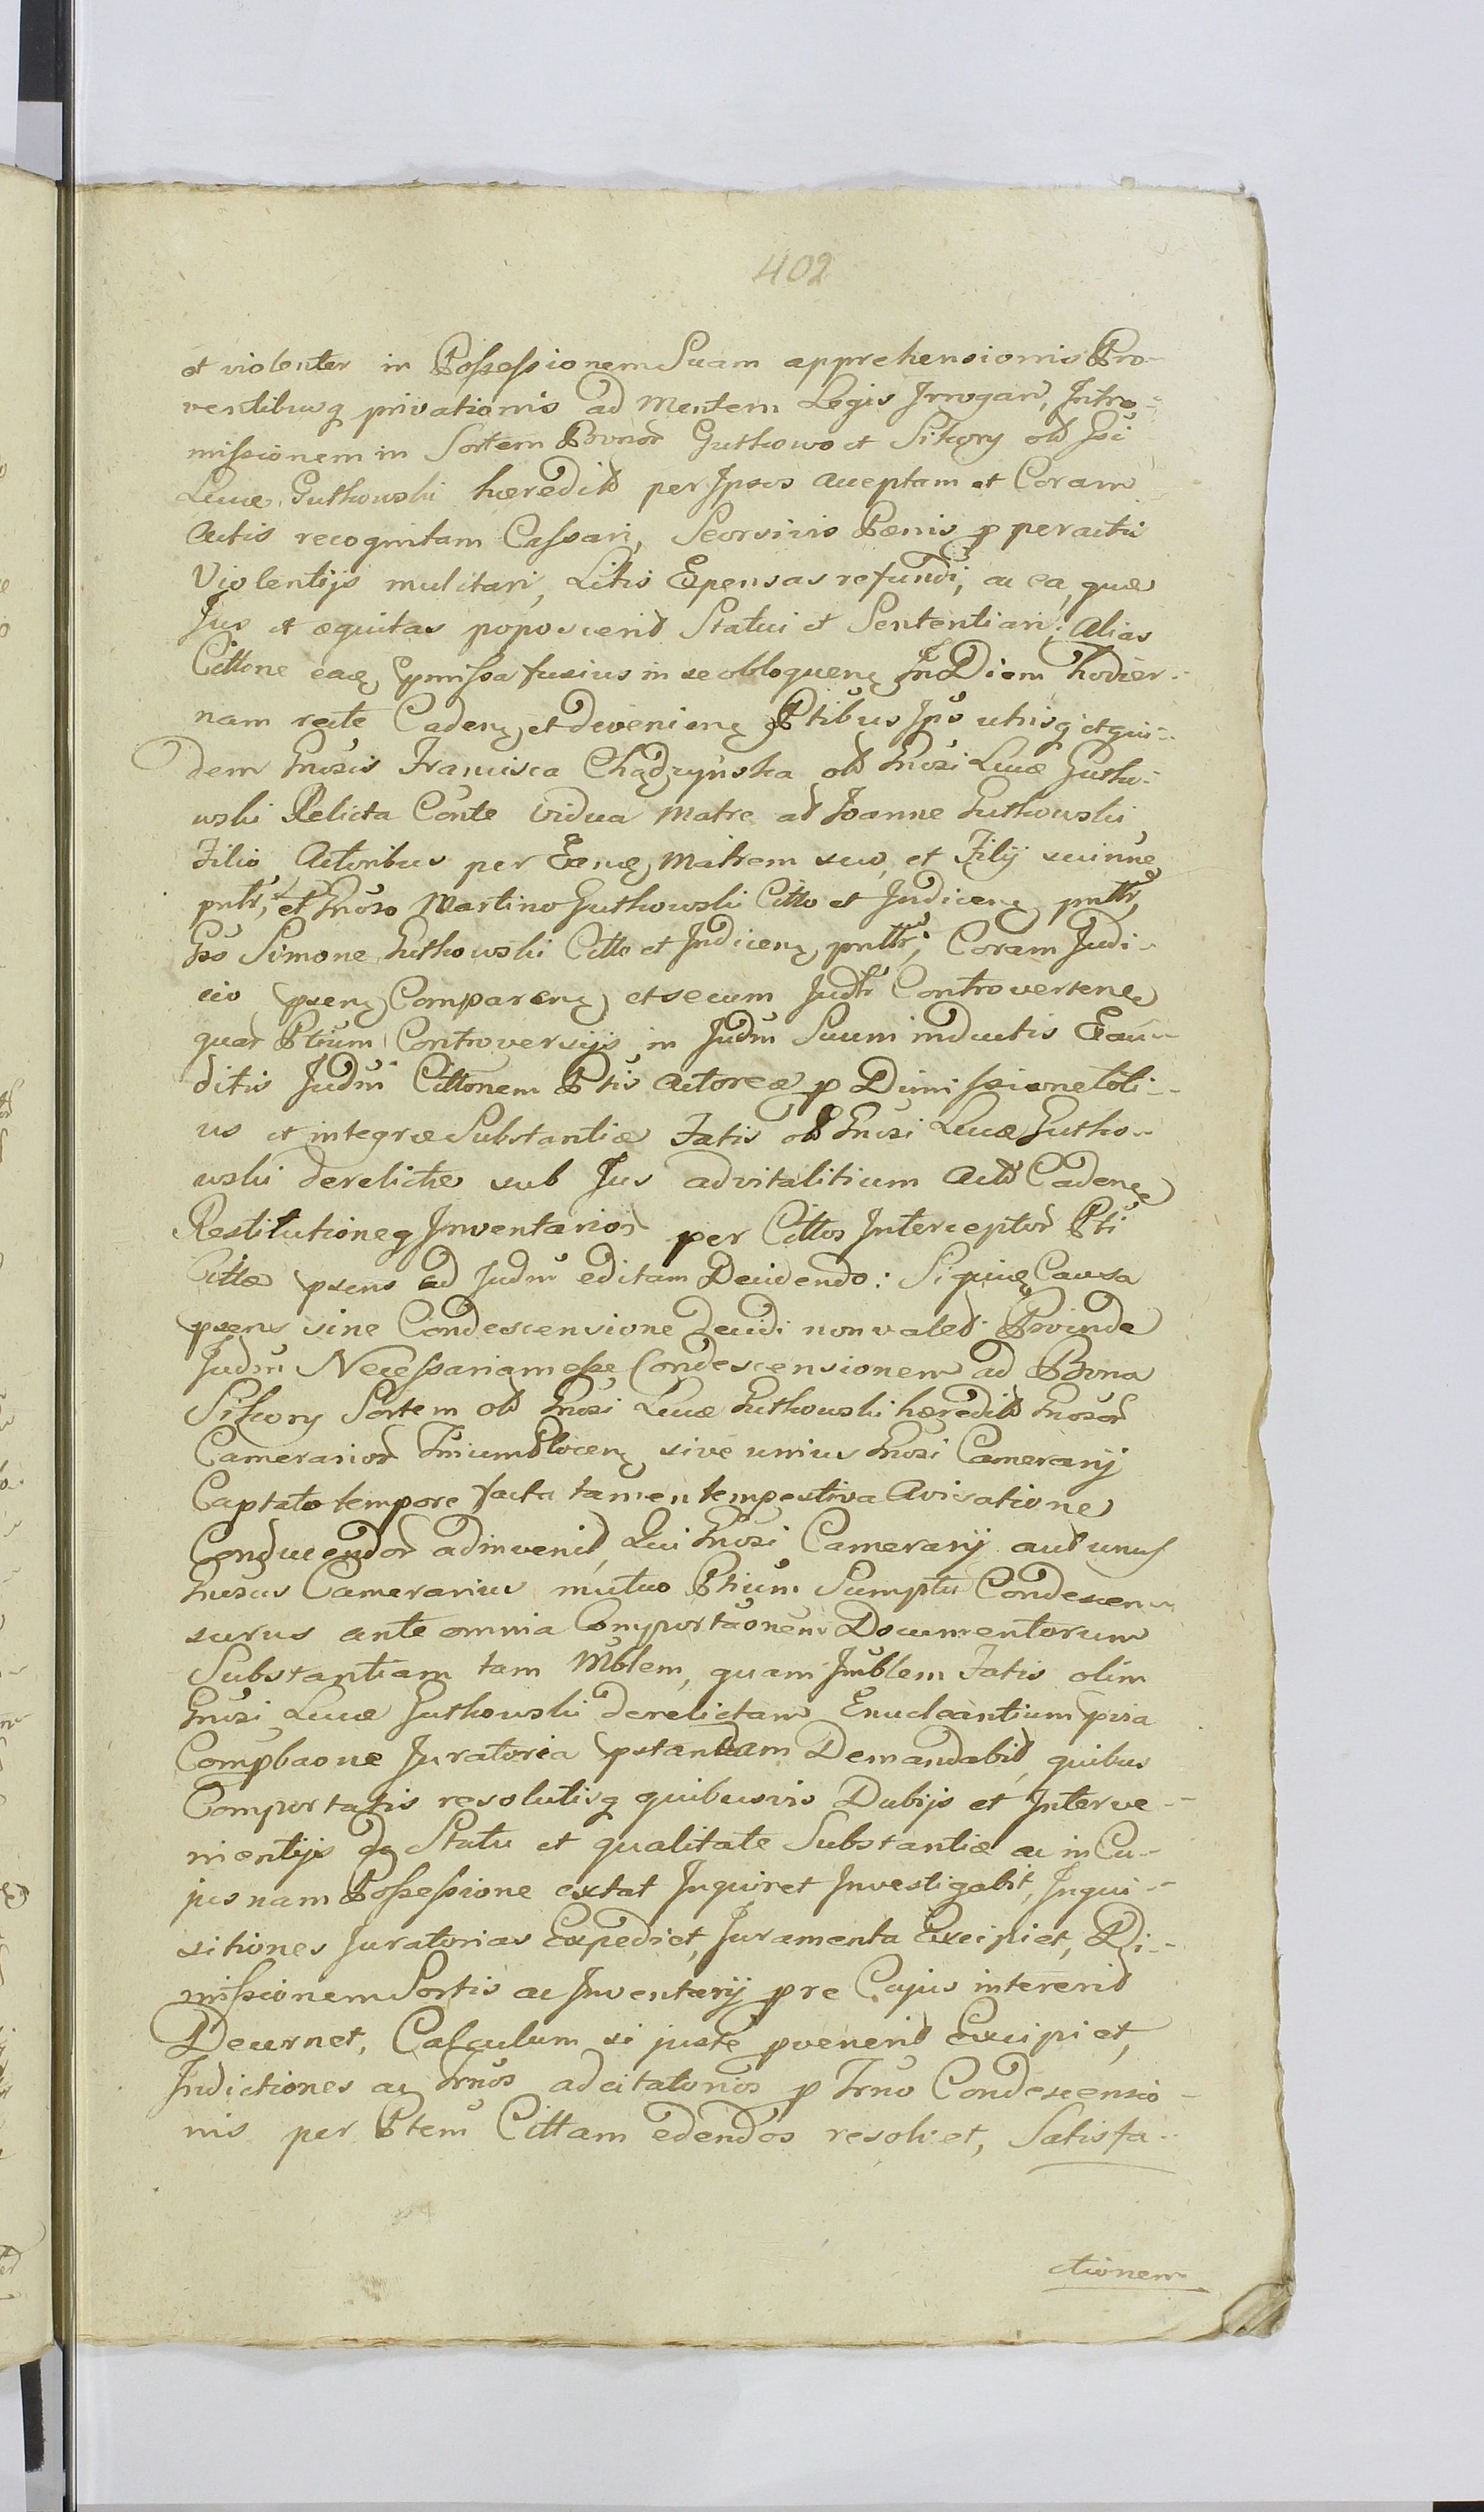 402
et violenter in Possessionem Suam apprehensionis Pro-
ventibusq privationis ad Mentem Legis Irrogari, Intro-
missionem in Sortem Bonor Gutkowo et Sikory olb Gsi
Lucæ Gutkowski hæredib per Ipsos acceptam et Coram
Actis recognitam Cassari, Seorsivis Pænis p peractis
Violentijs mulctari, Litis Expensas refundi, ac ea, quæ
Jus et æquitas poposcerit Statui et Sententiari; Alias
Cittone eaq pmissa fusius in se obloquenq In Diem hodier-
nam recte Cadenq et devenienq Ptibus Ips utrisq et qui-
dem Gnosis Francisca Chądzyńska olb Gnosi Lucæ Gutko-
wski Relicta Conte Vidua Matre ac Joanne Gutkowski
Filio Actoribus per Eanq Matrem suo, et Filij sui nne
pntr, et Gnoso Martino Gutkowski Citto et Judicenq pntbr,
Gso Simone Gutkowski Citto et Judicenq pntbr; Coram Judi-
cio psenq Comparenq et secum Judbr Controvertenq
quar Ptium Controversijs in Judm Suum inductis Exau-
ditis Judm Cittonem Ptis Actoreæ p Dimissione toti-
us et integræ Substantiæ Fatis olb Gnosi Lucæ Gutko-
wski derelictæ sub Jus advitalitium Acto Cadenq
Restitutioneq Inventarior per Cittos Interceptor Pti
Cittæ psens ad Judm editam Decidendo: Siquiq Causa
psens sine Condescensione decidi non valet. Proinde
Judm Necessariam esse Condescensionem ad Bona
Sikory Sortem olb Gnosi Lucæ Gutkowski hæredib Gnosor
Camerarior Triium Plocenq sive unius Gnosi Camerarij
Captato tempore facta tamen tempestiva Avisatione
Conducendor adinvenit, Qui Gnosi Camerarij aut unus
Gnosus Camerarius mutuo Ptium Sumptu Condescen-
surus ante omnia Comportaonem Documentorum
Substantiam tam Mblem, quam Jmblem Fatis olim
Gnosi Lucæ Gutkowski derelictam Enucleantium pvia
Compbaone Juratoria pstandam Demandabit, quibus
Comportatis resolutisq quibusvis Dubijs et Interve-
nientijs de Statu et qualitate Substantiæ ac in Cu-
jusnam Possessione extat Inquiret Investigabit, Inqui-
sitiones Juratorias Expediet, Juramenta Excipiet, Di-
missionem Sortis ac Inventarij pre Cujus intererit
Decernet, Calculum si juste pvenerit Excipiet,
Indictiones ac Trnos adcitatorios p Trno Condescensio-
nis per Ptem Cittam edendos resolvet, Satisfa-
ctionem